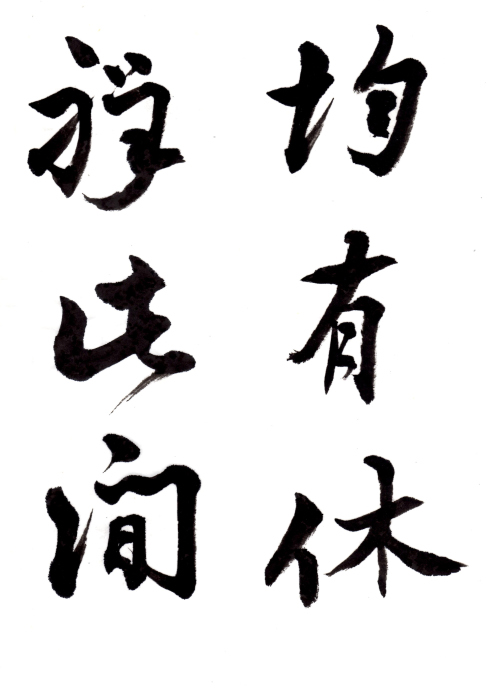 均有休
祥此間